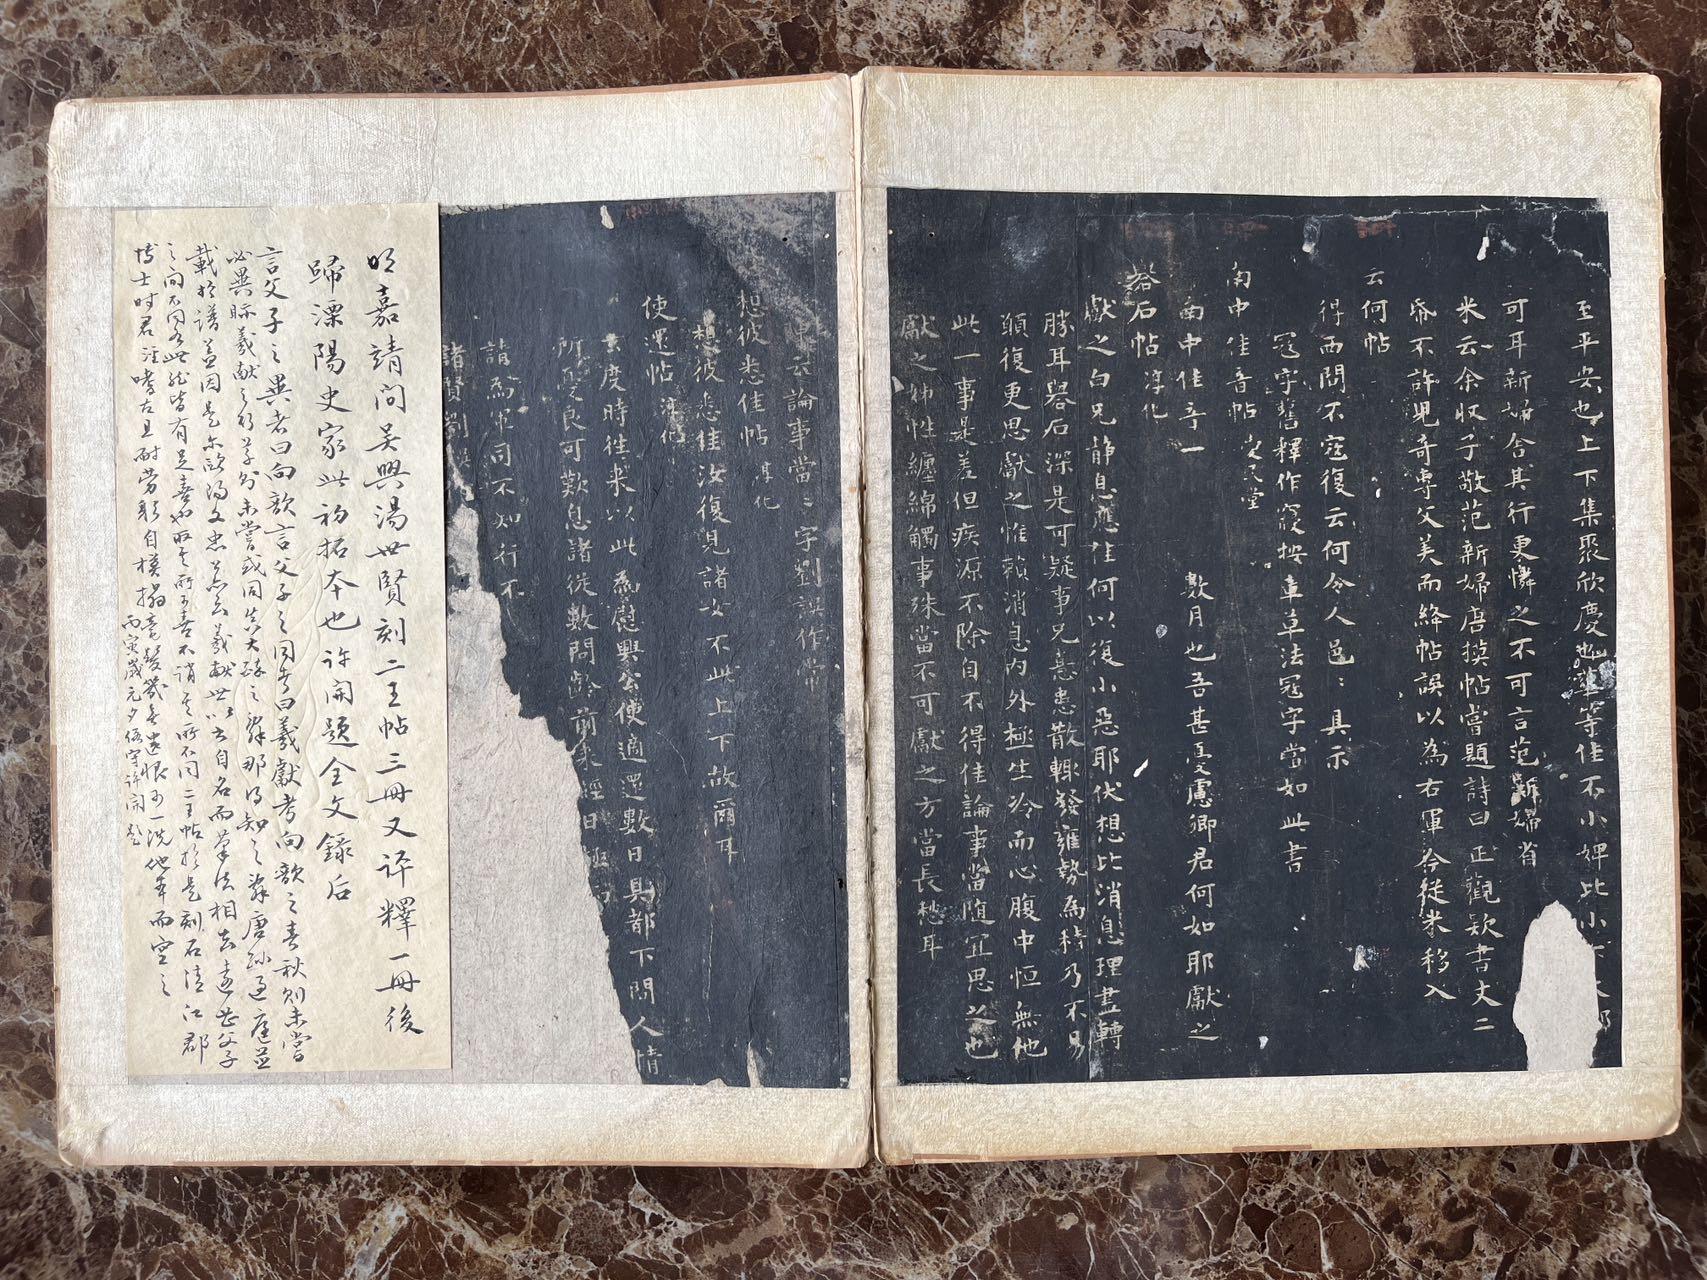 至平安也上下集聚欣慶也華等佳不小婢比小
可耳新婦含其行更憐之不可言范新婦省
米云余収子敬范新婦唐摸帖嘗題詩曰正觀欵書丈二
昏不許兒奇專父美而絳帖誤以為右軍今從米移入
云何帖
得西問不寇復云何令人邑〻具示
寇字舊釋作寢按章草法寇字當如此書
南中佳音帖
南中佳音一 數月也吾甚憂慮卿君何如耶獻之
礜石帖 淳化
獻之白兄静息應佳何以復小惡耶伏想比消息理盡轉
勝耳礜石深是可疑事兄憙患散輒發癰熱為積乃不易
頭復更思獻之惟賴消息內外極生冷而心腹中恒無他
此一事是差但疾源不除自不得佳論事當随宜思之也
獻之姊性纏綿觸事殊當不可獻之方當長愁耳
云論事當〻字劉誤作常
想彼悉佳帖 淳化
想彼悉佳汝復見諸女不此上下故爾耳
使還帖 淳化
玄度時往來以此為慰興公使適還數日具都下問人情
所憂良可歎息諸從數問齡前求經日
諸為軍同不知行不
諸賢劉誤
明嘉靖間吴興湯世賢刻二王帖三冊又評釋一冊後
歸溧陽史家此初拓本也許開題全文錄后
言父子之異者曰向歆言父子之同者曰羲獻考向歆之春秋則未嘗
必異眎羲獻之行草則未嘗或同其大疏之辭那得知之辭唐孫過庭並
載於譜蓋因是尔歐陽文忠亦云羲獻世以書自名而筆法相去遠甚父子
之間不同如此然皆有足喜也取其所可喜不誚其所不同二王帖於是刻石清江郡
博士时君注嗜古且耐劳躬自模搨毫髮幾無遺恨可一洗他本而空之
丙寅歲元夕後守許開題